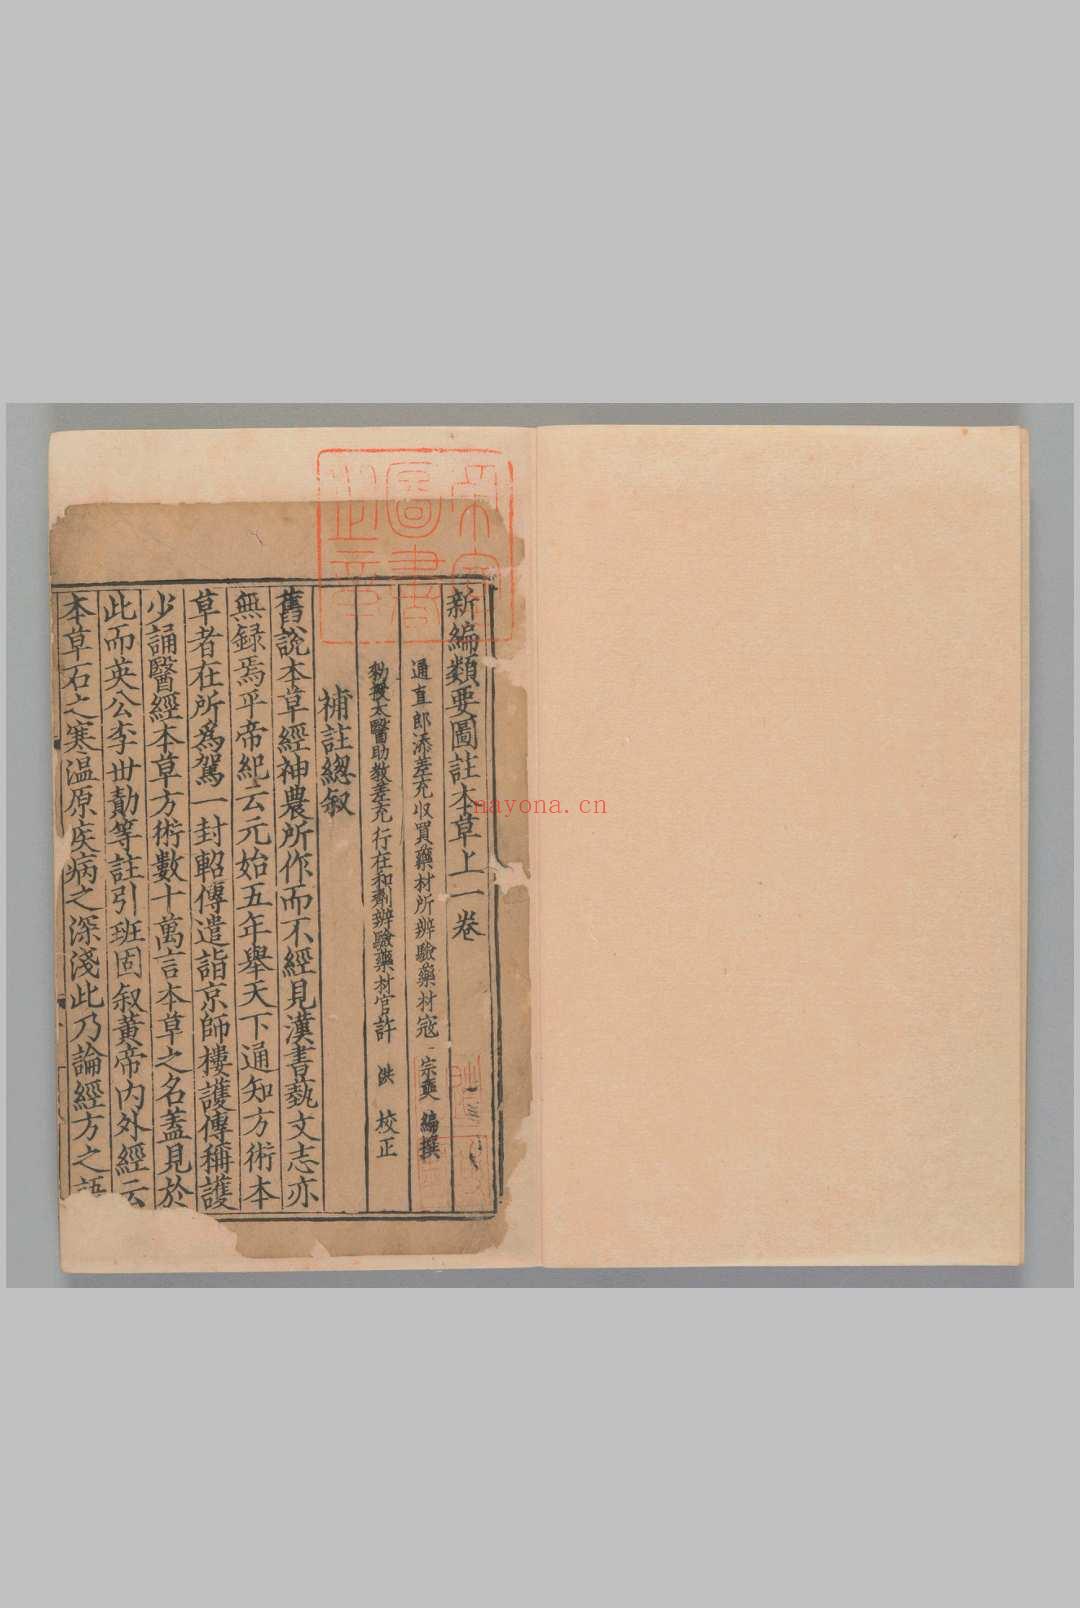 新編類要圖註本草上一卷
通直郎添差充收買藥材所辨驗藥材寇宗奭編撰
勑授太醫助教差充行在和劑辨驗藥材官許洪校正
補註總叙
舊說本草經神農所作而不經見漢書藝文志亦
無録焉平帝紀云元始五年舉天下通知方術本
草者在所爲駕一封軺傳遣詣京師樓護傳稱護
少誦醫經本草方術數十萬言本草之名蓋見於
此而英公李世勣等註引班固叙黄帝内外經云
本草石之寒温原疾病之深淺此乃論經方之語
圖書
之章
nayona.cn